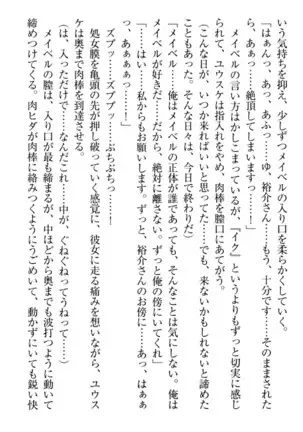 いう気持ちを抑え、少しずつメイベルの入り口を柔らかくしていく。
「はぁんっ、あっ、あふっ……ゆ、裕介さん……もう、十分です……そのままされた
らぁぁっ……絶頂してしまいますっ……！」
メイベルの言い方はかしこまっているが、『イク』というよりもずっと切実に感じ
られて、ユウスケは指入れをやめ、肉棒を膣口にあてがう。
（こんな日が、いつか来ればいいと思ってた……でも、来ないかもしれないと諦めた
こともあった。そんな日々は、今日で終わりだ）
「メイベル……俺はメイベルの正体が誰であっても、そんなことは気にしない。俺は
メイベルが好きだ……だから、絶対に離さない。ずっと俺の傍にいてくれ」
「……はい……私からもお願いします。ずっと、裕介さんのお傍に……あっ、はぁぁ
っ、あぁぁぁっ……！」
ズブッ……ズブブッ……ぷちぷちっ……！
処女膜を亀頭の先が押し破っていく感覚に、彼女に走る痛みを想いながら、ユウス
ケは奥まで肉棒を到達させる。
（は、入っただけで……なんだこれ……中が、ぐねぐねってうねって……）
メイベルの膣は、入り口が最も締まるが、中から奥までも波打つように動いて
締めつけてくる。肉ヒダが肉棒に絡みつくようにうごめいて、動かずにいても鋭い快